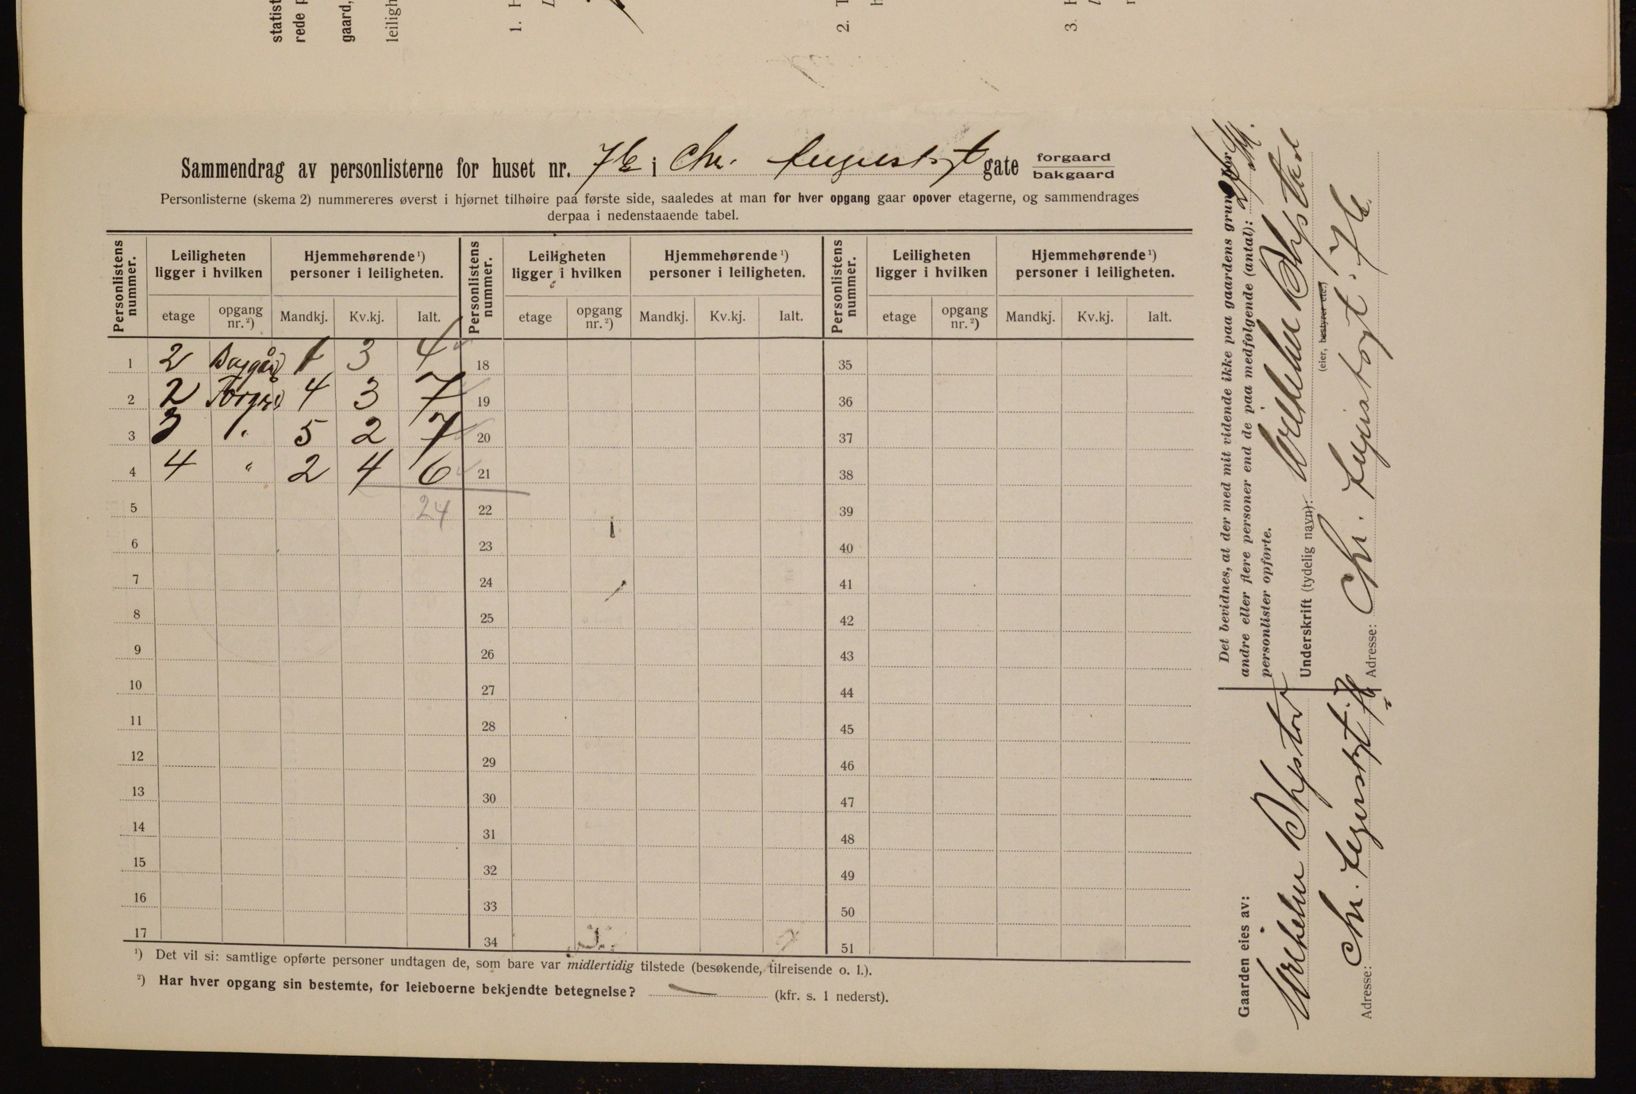 statist
rede p
gaard,
leiligh
1. H
2. T
h
3. H
Sammendrag av personlisterne for huset nr. 7b i Chr. Augustsgt gate forgaard
bakgaard
Personlisterne (skema 2) nummereres øverst i hjørnet tilhøire paa første side, saaledes at man for hver opgang gaar opover etagerne, og sammendrages
derpaa i nedenstaaende tabel.
Personlistens nummer. Leiligheten ligger i hvilken Hjemmehørende¹) personer i leiligheten. Personlistens nummer. Leiligheten ligger i hvilken Hjemmehørende¹) personer i leiligheten. Personlistens nummer. Leiligheten ligger i hvilken Hjemmehørende¹) personer i leiligheten.
etage opgang nr.²) Mandkj. Kv.kj. Ialt. etage opgang nr.²) Mandkj. Kv.kj. Ialt. etage opgang nr.²) Mandkj. Kv.kj. Ialt.
1 2 Baggård 1 3 4 18 35
2 2 Forgård 4 3 7 19 36
3 3 " 5 2 7 20 37
4 4 " 2 4 6 21 38
5 24 22 39
6 23 40
7 24 41
8 25 42
9 26 43
10 27 44
11 28 45
12 29 46
13 30 47
14 31 48
15 32 49
16 33 50
17 34 51
¹) Det vil si: samtlige opførte personer undtagen de, som bare var midlertidig tilstede (besøkende, tilreisende o. l.).
²) Har hver opgang sin bestemte, for leieboerne bekjendte betegnelse? — (kfr. s. 1 nederst).
Gaarden eies av:
Wilhelm
Adresse: Chr. Augustsgt. 7b
Det bevidnes, at der med mit vidende ikke paa gaardens grund bor
andre eller flere personer end de paa medfølgende (antal):
personlister opførte.
Underskrift (tydelig navn): Wilhelm
(eier, bestyrer etc.)
Adresse: Chr. Augustsgt. 7b